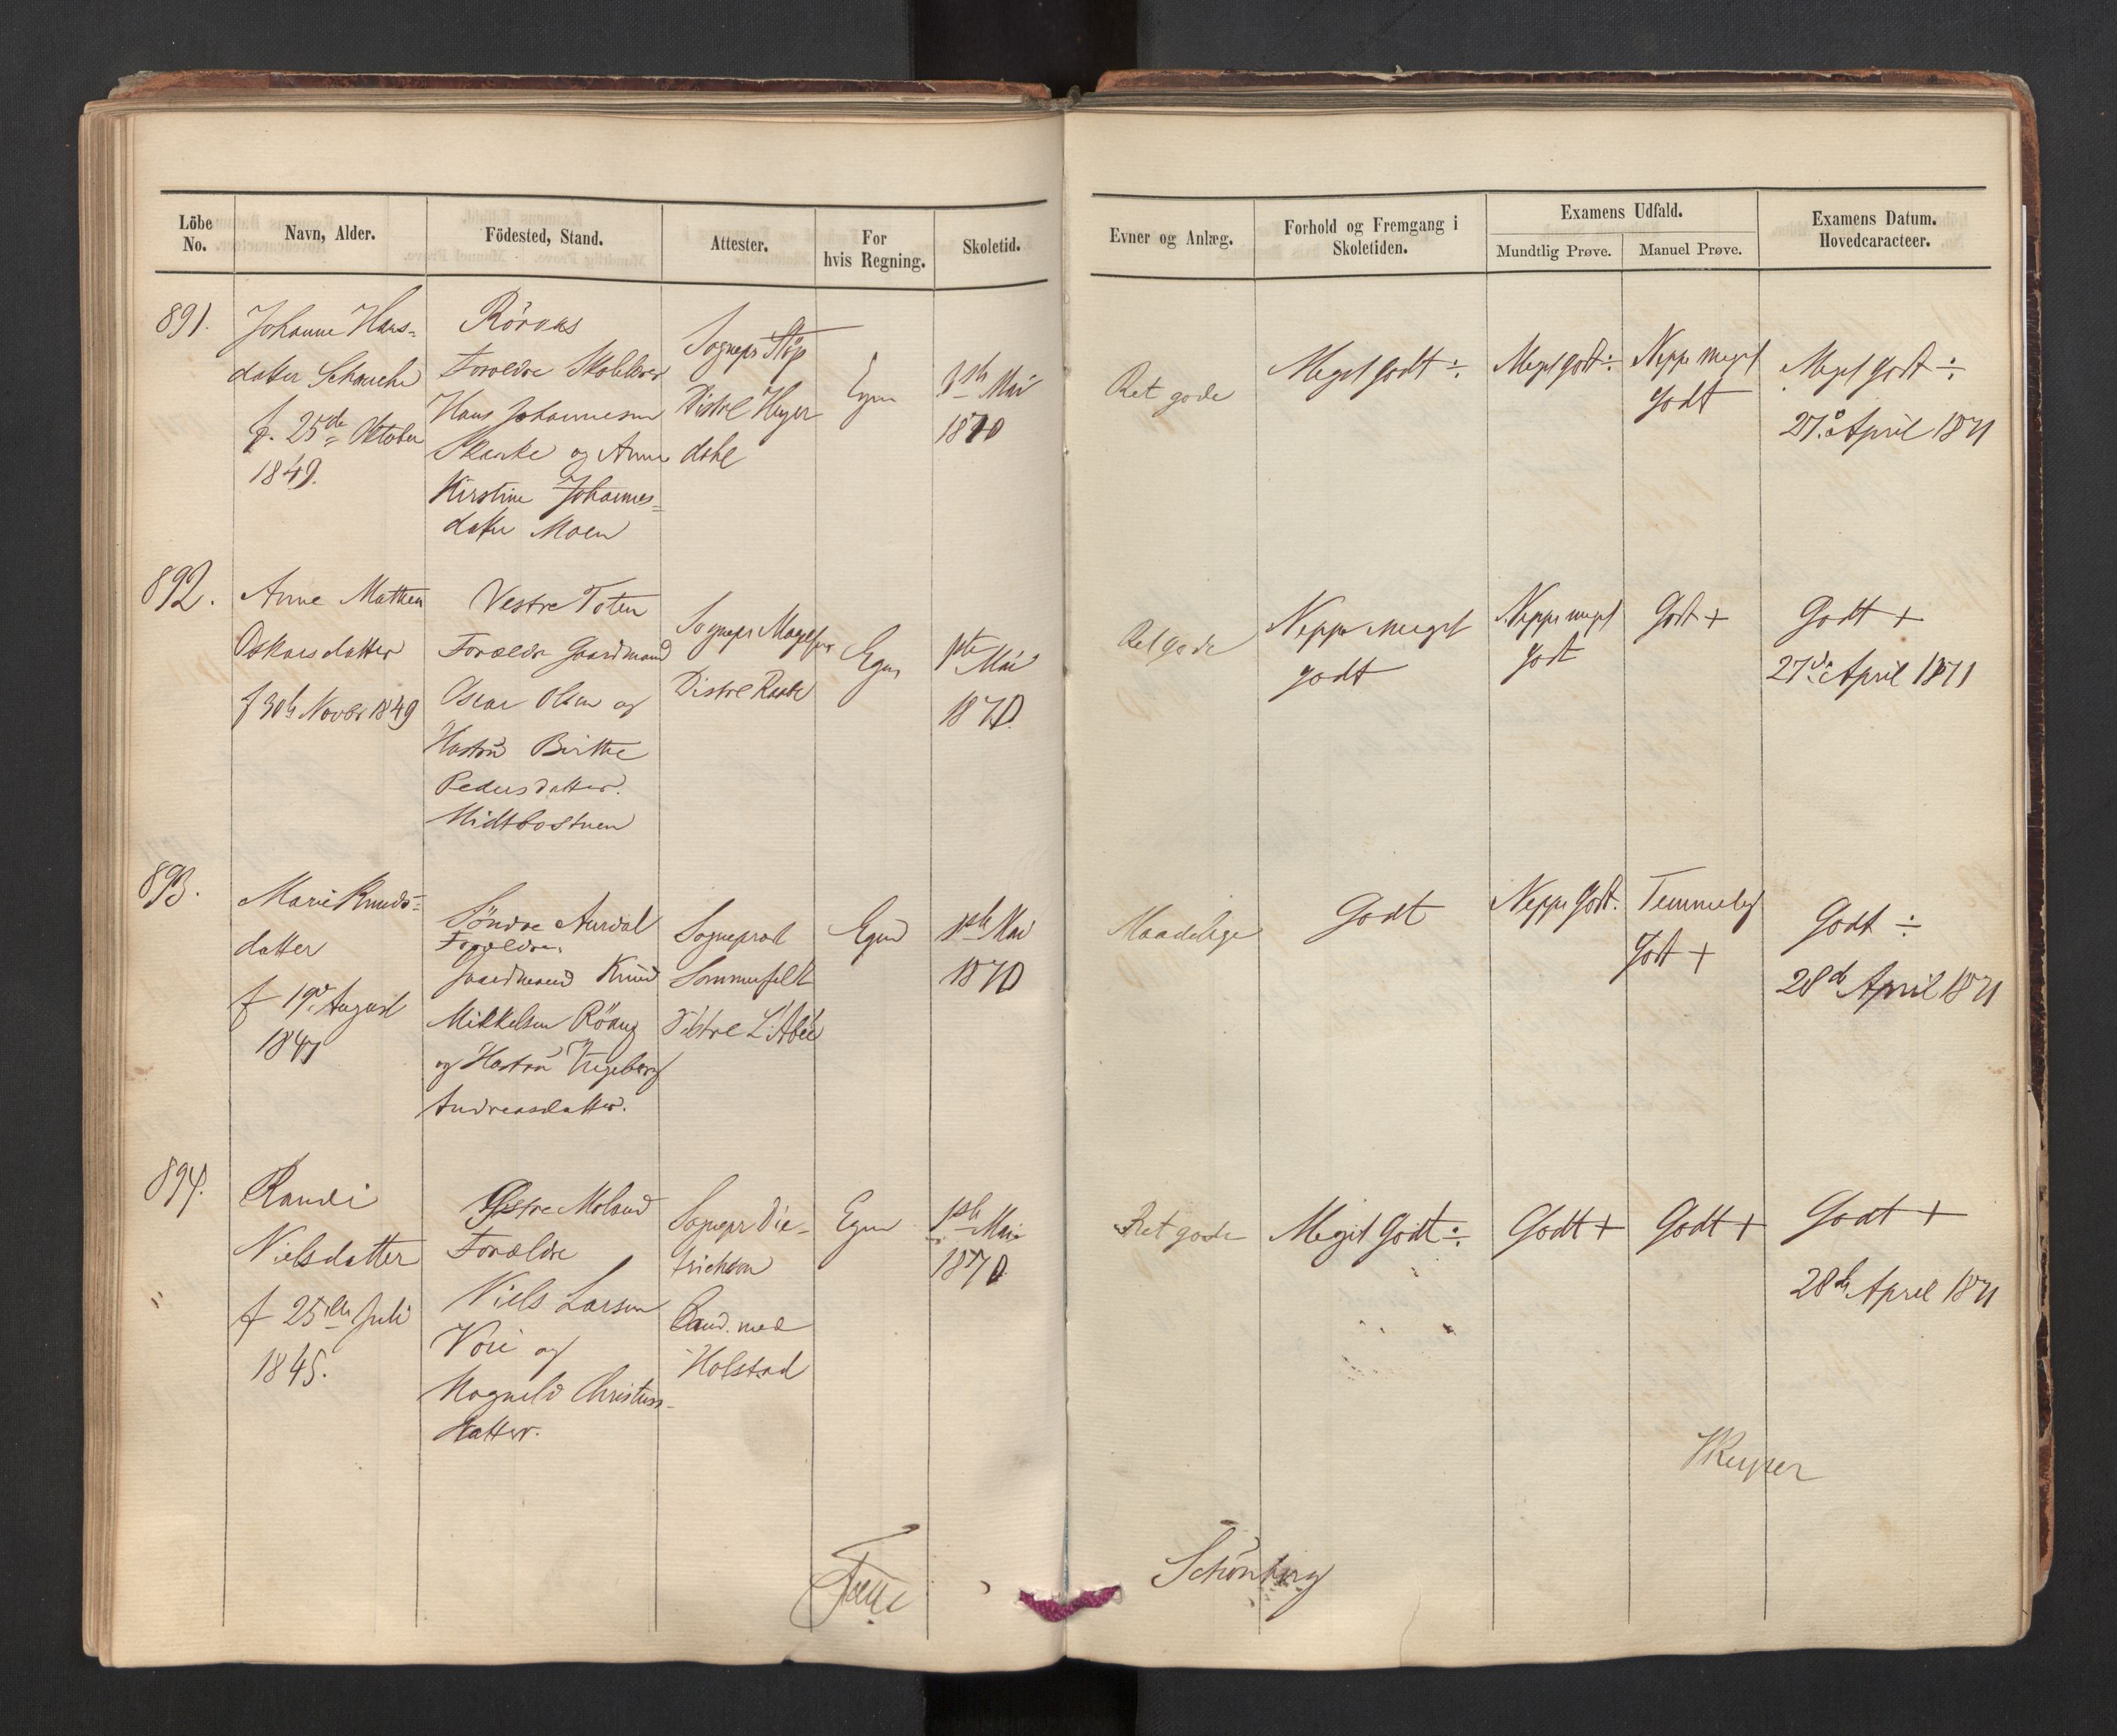 Löbe No.
Navn, Alder.
Födested, Stand.
Attester.
For hvis Regning.
Skoletid.
Evner og Anlæg.
Forhold og Fremgang i Skoletiden.
Examens Udfald.
Mundtlig Prøve.
Manuel Prøve.
Examens Datum. Hovedcaracteer.
891.
Johanne Hans-
datter Schanche
f. 25de Oktober
1849.
Röraas
Forældre Skolelærer
Hans Johannesen
Skanke og Anne
Kirstine Johannes-
datter Moen
Sognepr
Distrl Heyer
dahl
Egen
1ste Mai
1870
Ret gode
Meget godt ÷
Meget godt ÷
Neppe meget
godt
Meget godt ÷
27de April 1871
892.
Anne Mathea
Oskarsdatter
f 30te Novbr 1849
Vestre Toten
Forældre Gaardmand
Oscar Olsen og
Hustru Birthe
Pedersdatter.
Midtbostuen
Sognepr Magelsen
Distrl Raabe
Egen
1ste Mai
1870.
Ret gode
Neppe meget
godt
Neppe meget
godt
Godt +
Godt +
27de April 1871
893.
Marie Knuds-
datter
f 19de August
1847
Söndre Aurdal
Forældre.
Gaardmand Knud
Mikkelsen
og Hustru Ingeborg
Andreasdatter.
Sogneprest
Sommerfelt
Distrl L'Abée
Egen
1ste Mai
1870
Maadelige
Godt
Neppe Godt.
Temmelig
Godt +
Godt ÷
28de April 1871
894.
Randi
Nielsdatter
f 25de Juli
1845.
Østre Moland
Forældre
Niels Larsen
og
Magnild Christens-
datter.
Sognepr Die-
trichson
Cand. med
Holstad
Egen
1ste Mai
1870
Ret gode
Meget Godt ÷
Godt +
Godt +
Godt +
28de April 1871
Schönberg